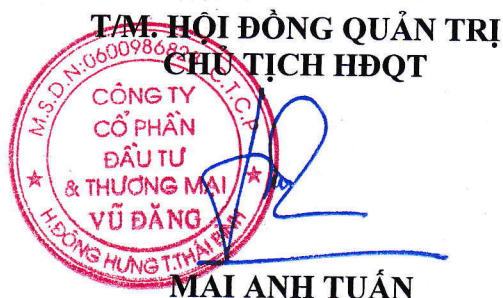 T/M. HỘI ĐỒNG QUẢN TRỊ
CHỦ TỊCH HĐQT
M.S.D.N:06009868 C.T.C.P
CÔNG TY
CỔ PHẦN
ĐẦU TƯ
& THƯƠNG MẠI
VŨ ĐĂNG
H.ĐÔNG HƯNG T.THÁI BÌNH
MAI ANH TUẤN